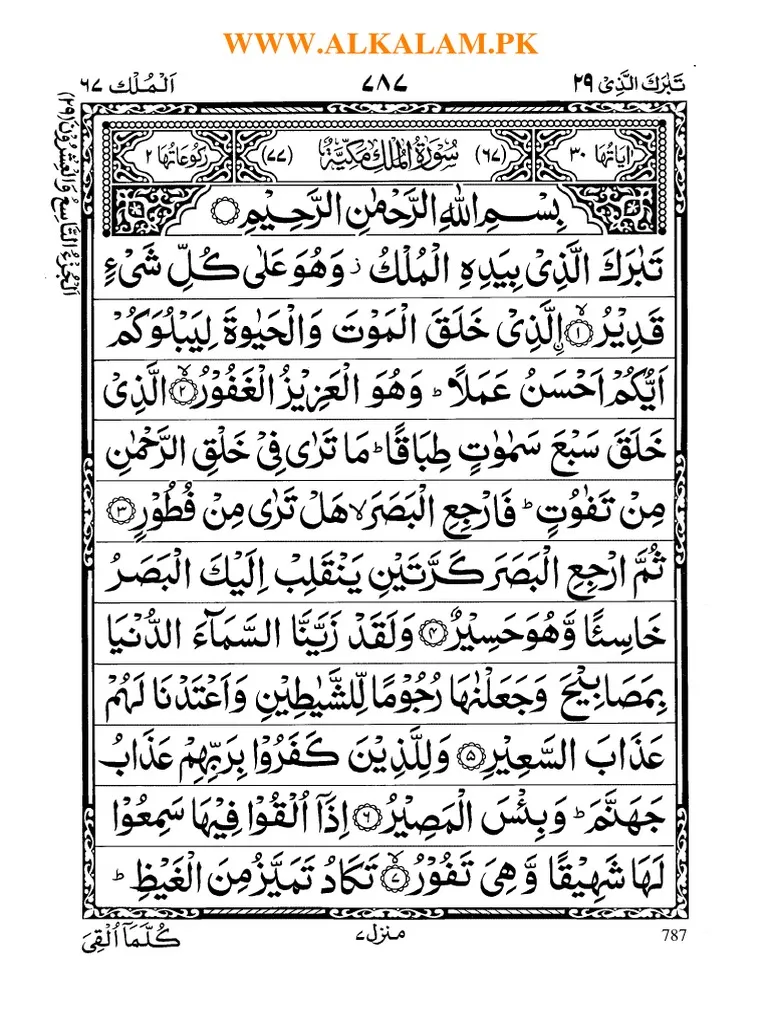 WWW.ALKALAM.PK
تَبٰرَكَ الَّذِىْ ٢٩
٧٨٧
اَلْمُلْك ٦٧
اَلْجُزْءُ التَّاسِعُ وَالْعِشْرُوْنَ (٢٩)
اٰيَاتُهَا ٣٠
(٦٧) سُوْرَةُ الْمُلْكِ مَكِّيَّةٌ (٧٧)
رُكُوْعَاتُهَا ٢
بِسْمِ اللّٰهِ الرَّحْمٰنِ الرَّحِيْمِ ۝
تَبٰرَكَ الَّذِىْ بِيَدِهِ الْمُلْكُ ز وَهُوَ عَلٰى كُلِّ شَىْءٍ
قَدِيْرُ ۙ﴿١﴾ ۨالَّذِىْ خَلَقَ الْمَوْتَ وَالْحَيٰوةَ لِيَبْلُوَكُمْ
اَيُّكُمْ اَحْسَنُ عَمَلًا ؕ وَهُوَ الْعَزِيْزُ الْغَفُوْرُ ۙ﴿٢﴾ الَّذِىْ
خَلَقَ سَبْعَ سَمٰوٰتٍ طِبَاقًا ؕ مَا تَرٰى فِىْ خَلْقِ الرَّحْمٰنِ
مِنْ تَفٰوُتٍ ؕ فَارْجِعِ الْبَصَرَ ۙ هَلْ تَرٰى مِنْ فُطُوْرٍ ﴿٣﴾
ثُمَّ ارْجِعِ الْبَصَرَ كَرَّتَيْنِ يَنْقَلِبْ اِلَيْكَ الْبَصَرُ
خَاسِئًا وَّهُوَ حَسِيْرٌ ﴿٤﴾ وَلَقَدْ زَيَّنَّا السَّمَآءَ الدُّنْيَا
بِمَصَابِيْحَ وَجَعَلْنٰهَا رُجُوْمًا لِّلشَّيٰطِيْنِ وَاَعْتَدْنَا لَهُمْ
عَذَابَ السَّعِيْرِ ﴿٥﴾ وَلِلَّذِيْنَ كَفَرُوْا بِرَبِّهِمْ عَذَابُ
جَهَنَّمَ ؕ وَبِئْسَ الْمَصِيْرُ ﴿٦﴾ اِذَآ اُلْقُوْا فِيْهَا سَمِعُوْا
لَهَا شَهِيْقًا وَّهِىَ تَفُوْرُ ۙ﴿٧﴾ تَكَادُ تَمَيَّزُ مِنَ الْغَيْظِ ؕ
787
منزل ٧
كُلَّمَآ اُلْقِىَ